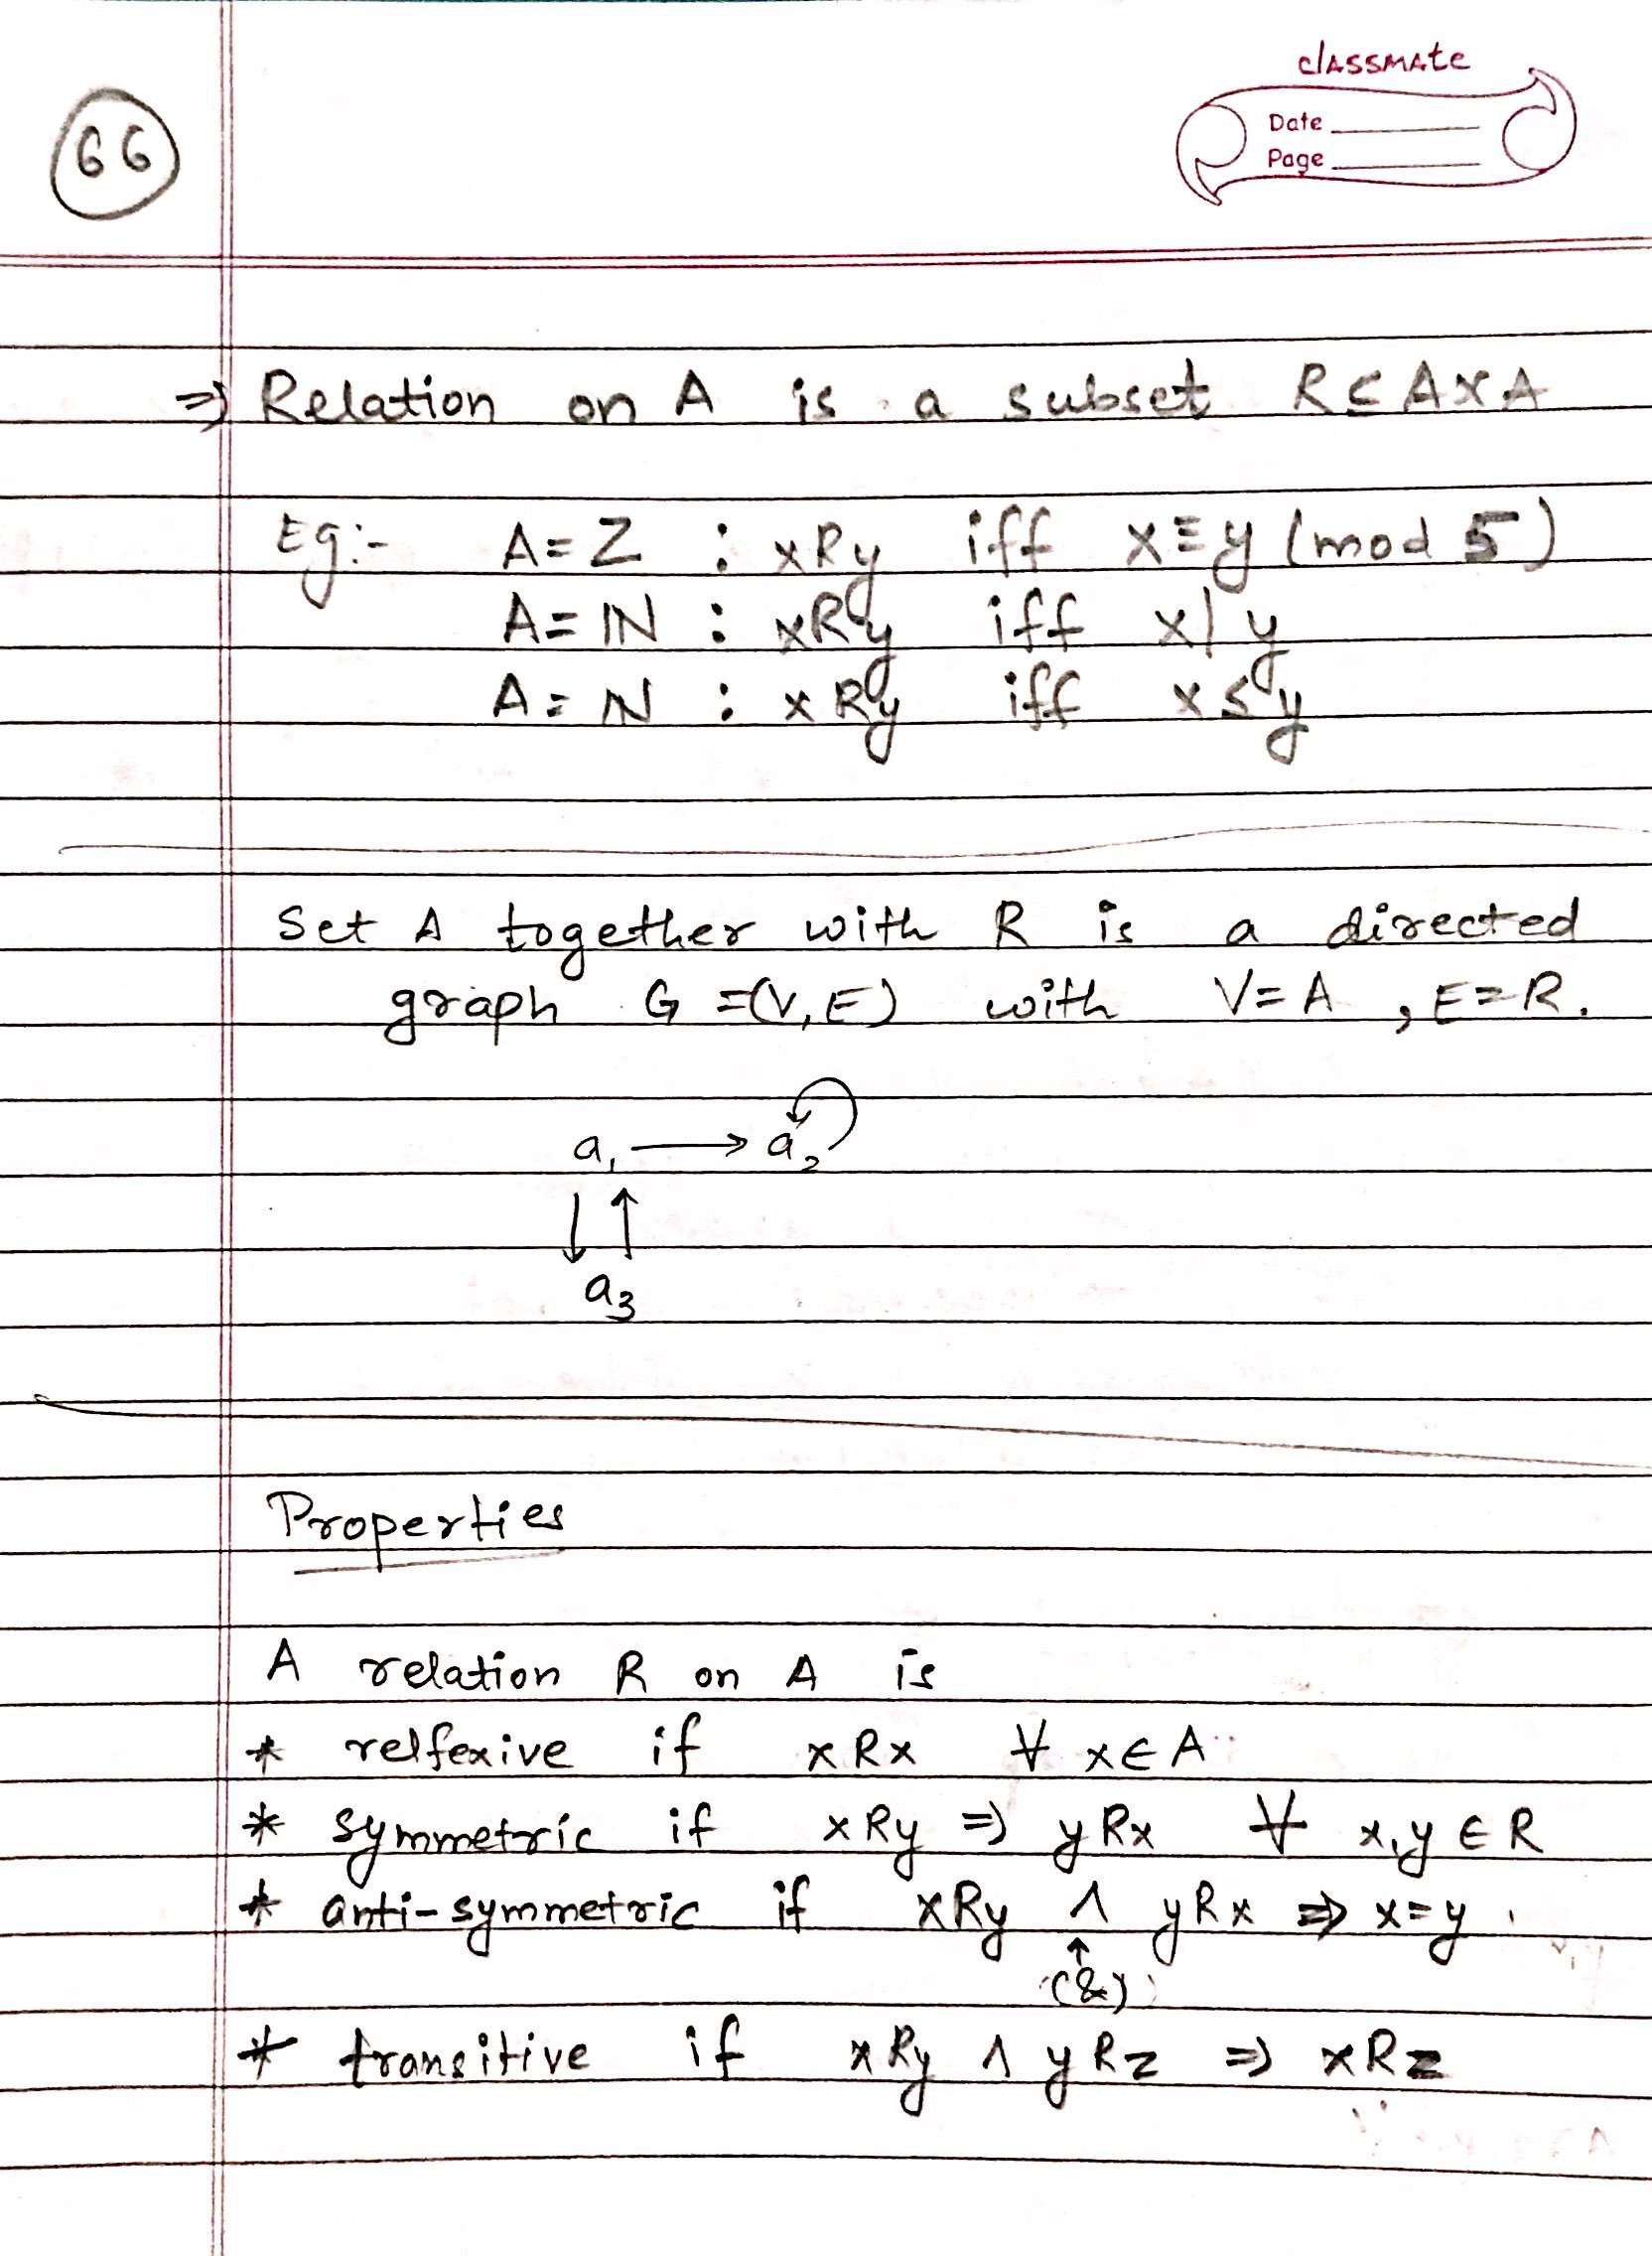 classmate
Date
Page
66
⇒ Relation on A is a subset R ⊆ A×A
Eg:- A = Z : xRy iff x ≡ y (mod 5)
A = IN : xRy iff x | y
A = IN : xRy iff x ≤ y
Set A together with R is a directed
graph G = (V, E) with V = A , E = R.
a₁ ⟶ a₂
↓ ↑
a₃
Properties
A relation R on A is
* relfexive if xRx ∀ x ∈ A
* symmetric if xRy ⇒ yRx ∀ x,y ∈ R
* anti-symmetric if xRy ∧ yRx ⇒ x = y .
↑
(&)
* transitive if xRy ∧ yRz ⇒ xRz